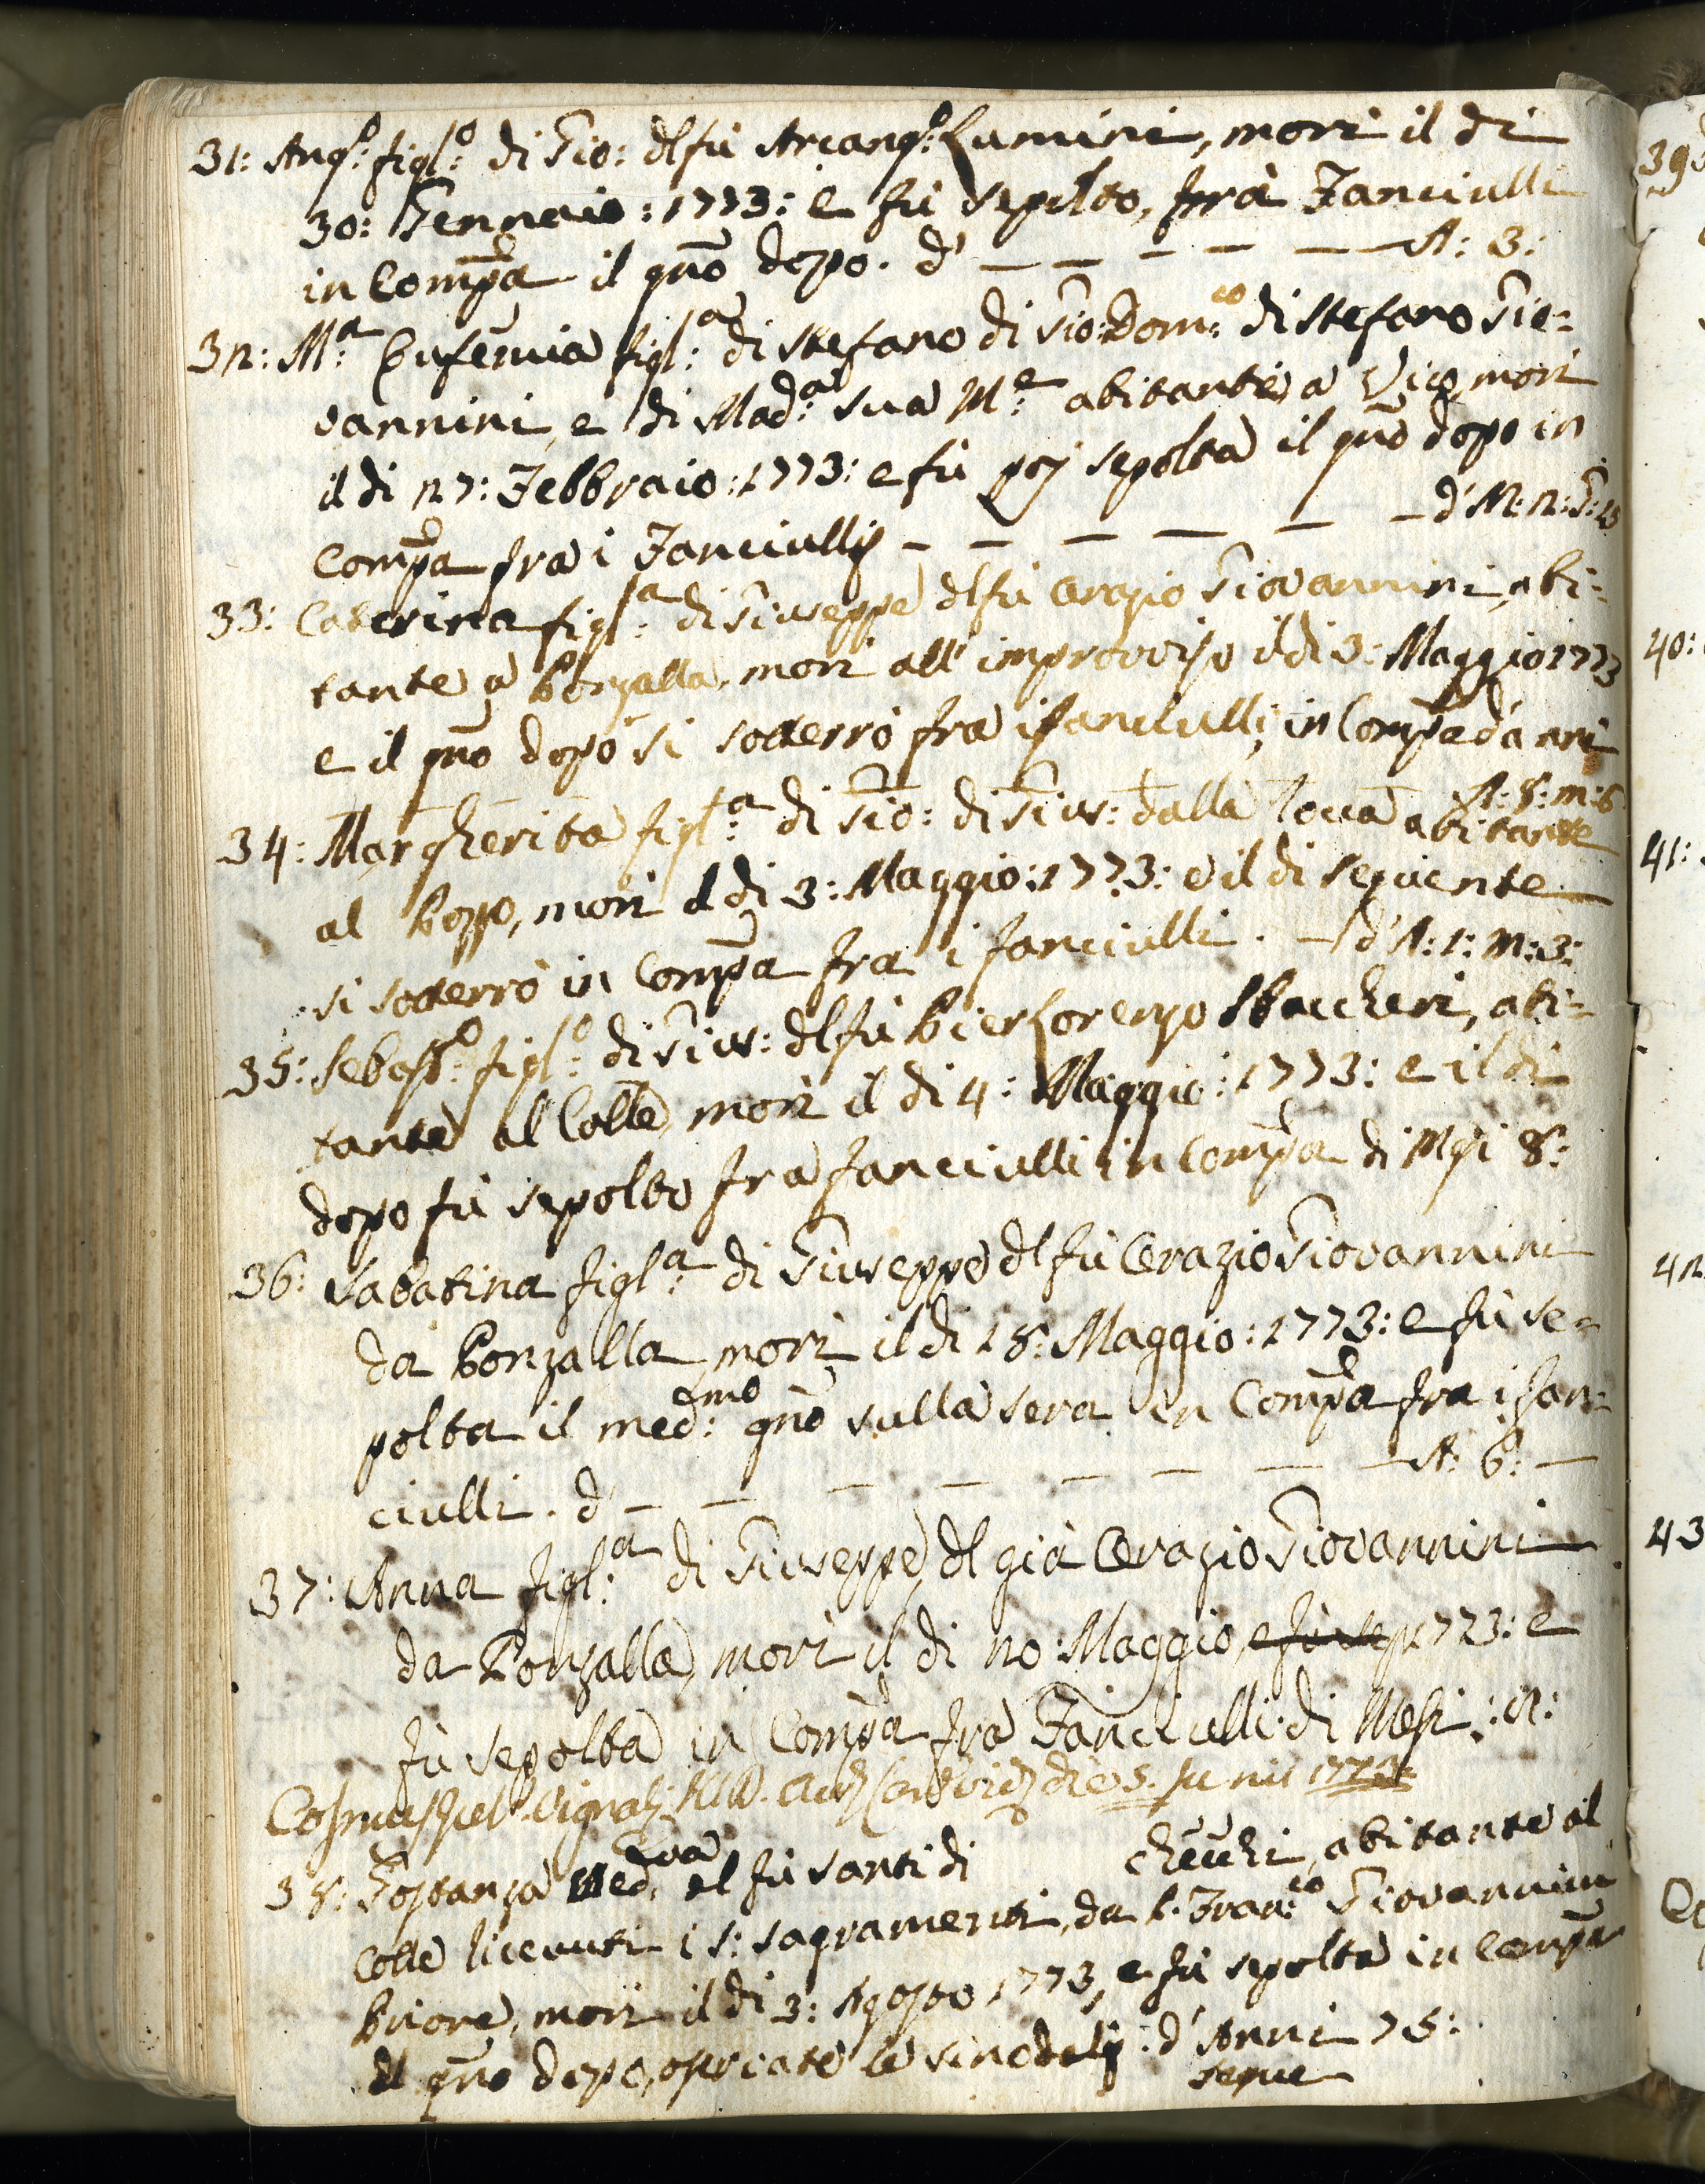 31: Ang:º figl:º di Gio: dl fù Arcang:º Lumini, morì il di
30: Gennaio: 1773: e fù sepolto, frà Fanciulli
in Compa il gno dopo. d' — — — — — A: 3:
32: M:a Eufemia figl:a di Stefano di Gio: Dom:co di Stefano Gio=
vannini, e di Mad:a sua M:e abitante a Vico, morì
il di 27: Febbraio: 1773: e fù poi sepolta il gno dopo in
Compa fra i Fanciulli — — — — — d' M: 2: G: 15
33: Caterina figl:a di Giuseppe dl fù Orazio Giovannini, abi=
tante a Ponzalla, morì all' improvviso il di 3: Maggio 1773
e il gno dopo si sotterrò fra i fanciulli, in Compa d'anni
A: 8: m: 6
34: Margherita figl:a di Gio: di Gius: dalla Tocca abitante
al Pozzo, morì il di 3: Maggio: 1773: e il di seguente
si sotterrò in Compa fra i fanciulli. — d' A: 1: m: 3:
35: Sebast:º figl:º di Gius: dl fù Pier Lorenzo Sbaccheri, abi=
tante al Colle, morì il di 4: Maggio: 1773: e il di
dopo fù sepolto fra fanciulli in Compa di Msi 8:
36: Sabatina figl:a di Giuseppe dl fù Orazio Giovannini
da Ponzalla, morì il di 18: Maggio: 1773: e fù se=
polta il med:mo gno sulla sera in Compa fra i fan=
ciulli. d — — — — — — A: 6: —
37: Anna figl:a di Giuseppe, dl già Orazio Giovannini
da Ponzalla, morì il di 20: Maggio, e fù sep 1773: e
fù sepolta in Compa fra Fanciulli di Mesi: 2:
die 5. Junii 1773
38: Gostanza Ved:va dl fù Santi di Checchi, abitante al
Colle licevuti i S: Sagramenti, da P. Fran:co Giovannini
Priore, morì il di 3: Agosto 1773, e fù sepolta in Compa
il gno dopo, osservate le sinodali: d' Anni 75:
segue
39
40:
41:
42
43